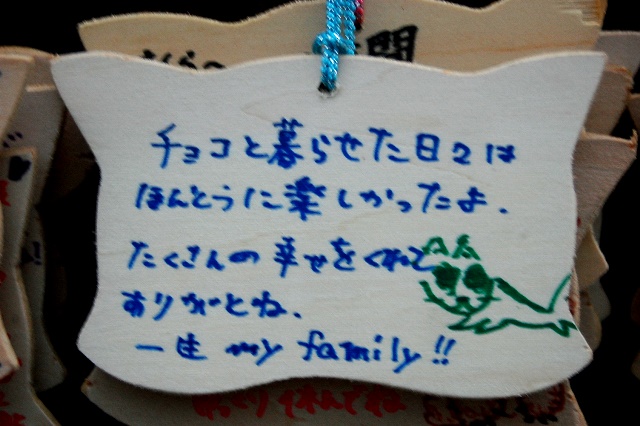 チョコと暮らせた日々は
ほんとうに楽しかったよ.
たくさんの幸せをくれて
ありがとね.
一生 my family!!